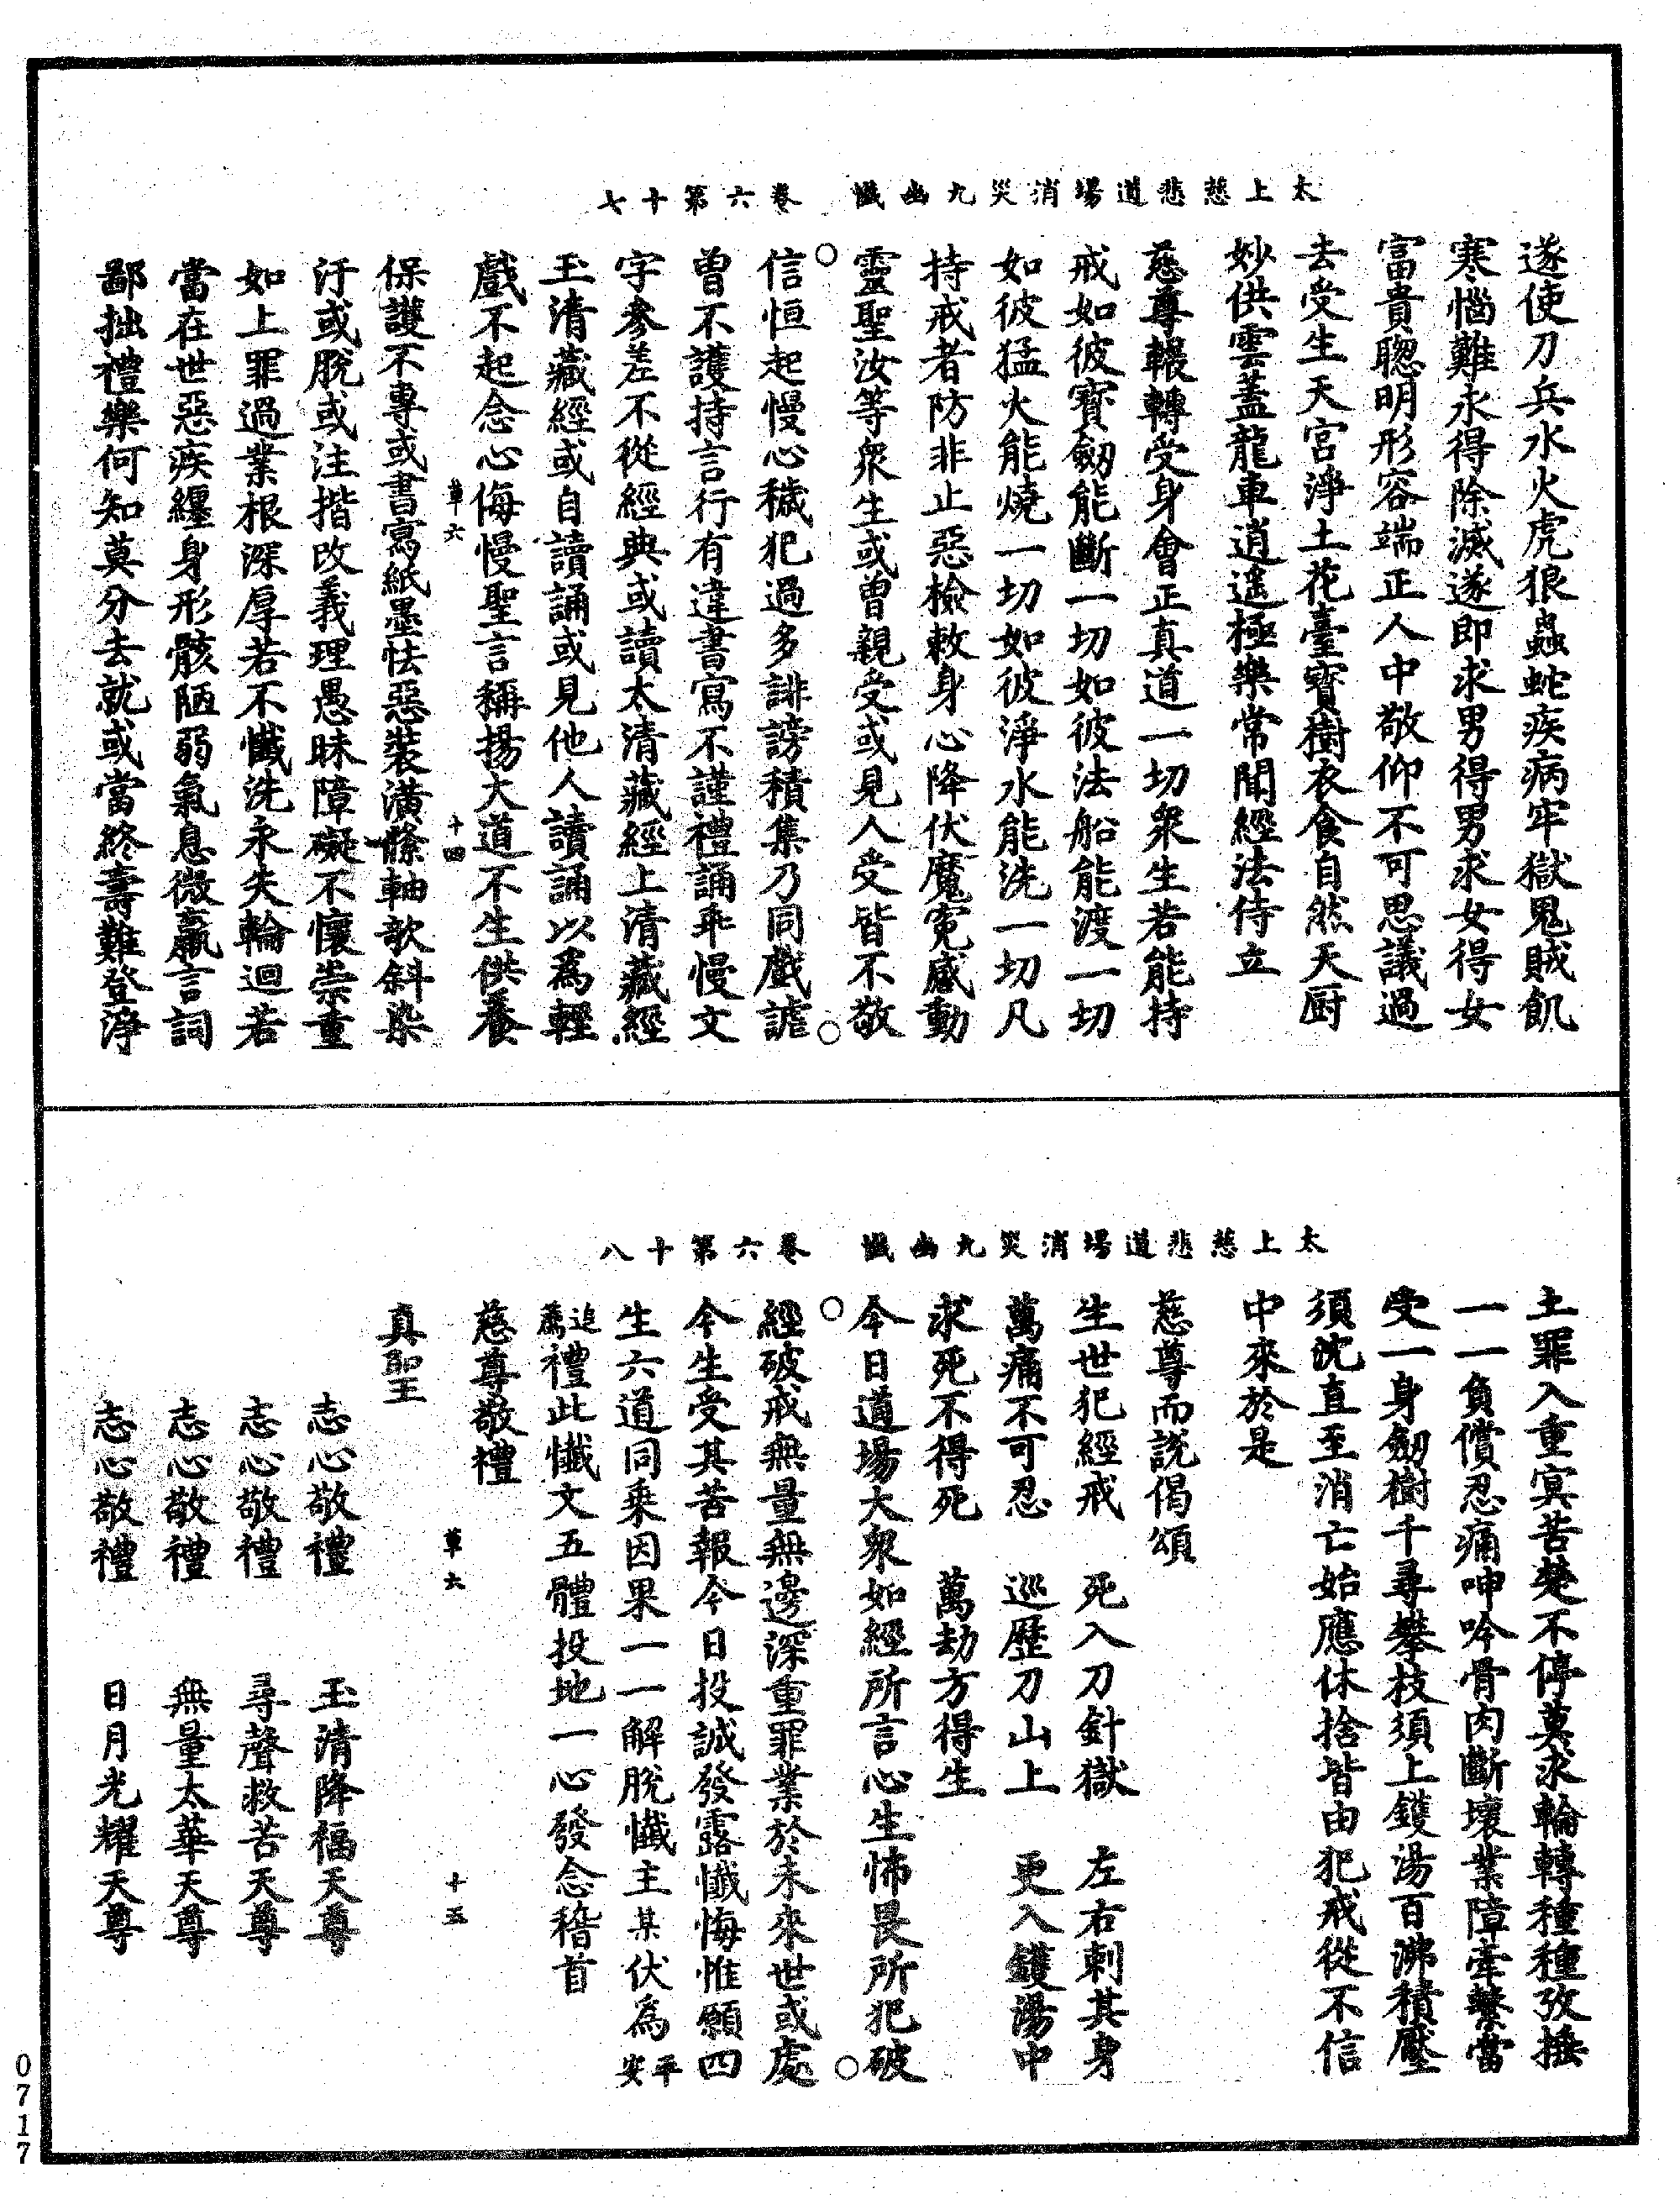 太上慈悲道場消災九幽懺　卷六第十七
遂使刀兵水火虎狼蟲蛇疾病牢獄鬼賊飢
寒惱難永得除滅遂即求男得男求女得女
富貴聰明形容端正人中敬仰不可思議過
去受生天宮淨土花臺寶樹衣食自然天厨
妙供雲蓋龍車逍遥極樂常聞經法侍立
慈尊輾轉受身會正真道一切衆生若能持
戒如彼寶劒能斷一切如彼法船能渡一切
如彼猛火能燒一切如彼淨水能洗一切凡
持戒者防非止惡檢敕身心降伏魔寃感動
靈聖汝等衆生或曾親受或見人受皆不敬
信恒起慢心穢犯過多誹謗積集乃同戲謔
曾不護持言行有違書寫不謹禮誦乖慢文
字參差不從經典或讀太清藏經上清藏經
玉清藏經或自讀誦或見他人讀誦以爲輕
戲不起念心侮慢聖言稱揚大道不生供養
草六　十四
保護不專或書寫紙墨怯惡裝潢絛軸欹斜染
汙或脫或注揩改義理愚昧障礙不懷崇重
如上罪過業根深厚若不懺洗永失輪迴若
當在世惡疾纏身形骸陋弱氣息微羸言詞
鄙拙禮樂何知莫分去就或當終壽難登淨
太上慈悲道場消災九幽懺　卷六第十八
土罪入重冥苦楚不停莫求輪轉種種攷捶
一一負償忍痛呻吟骨肉斷壞業障牽繫當
受一身劒樹千尋攀枝須上鑊湯百沸積壓
須沈直至消亡始應休捨皆由犯戒從不信
中來於是
慈尊而說偈頌
生世犯經戒　死入刀針獄　左右刺其身
萬痛不可忍　巡歷刀山上　更入鑊湯中
求死不得死　萬劫方得生
今日道場大衆如經所言心生怖畏所犯破
經破戒無量無邊深重罪業於未來世或處
今生受其苦報今日投誠發露懺悔惟願四
生六道同乘因果一一解脫懺主某伏爲平安
追薦禮此懺文五體投地一心發念稽首
慈尊敬禮
草六　十五
真聖
志心敬禮　玉清降福天尊
志心敬禮　尋聲救苦天尊
志心敬禮　無量太華天尊
志心敬禮　日月光耀天尊
0717